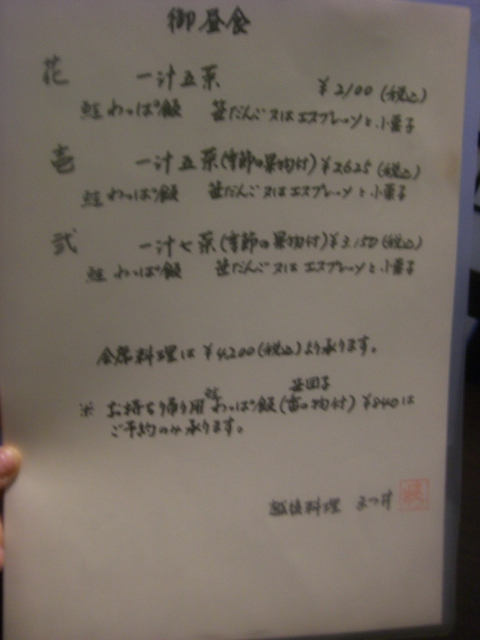 御昼食
花 一汁五菜 ¥2,100(税込)
鮭わっぱ飯 笹だんご又はエスプレーソと小菓子
壱 一汁五菜(季節の果物付)¥2625(税込)
鮭わっぱ飯 笹だんご又はエスプレーソと小菓子
弐 一汁七菜(季節の果物付)¥3,150(税込)
鮭わっぱ飯 笹だんご又はエスプレーソと小菓子
会席料理は¥4200(税込)より承ります。
※ お持ち帰り用鮭わっぱ飯(香の物付)¥840は
笹団子
ご予約のみ承ります。
越後料理